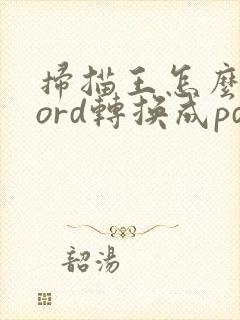 掃描王怎麼
ord轉換成pd
韶湯